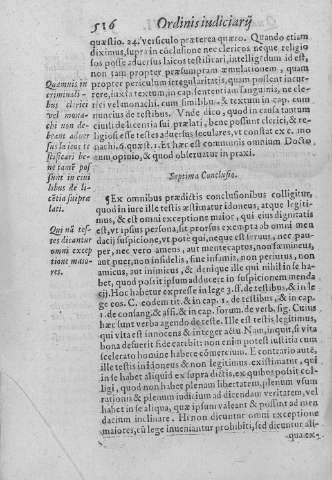 536 Ordinis iudiciarij
quæstio. 24. versiculo præterea quæro. Quando etiam
diximus, supra in cõclusione nec clericos neque religio
sos posse aduersus laicos testificari, intelligendum id est,
non tam propter præsumptam æmulationem, quam
propter periculum irregularitatis, quam possent incur-
rere, iuxta textum in cap. sententiam sanguinis, ne cle
rici vel monachi. cum similibus. & textum in cap. cum
nuncius de testibus. Vnde dico, quod in causa tantum
ciuili de licentia sui prælati, bene possunt clerici, & re-
ligiosi esse testes aduersus seculares, vt constat ex c. mo
nachi. 6. quæst. 1. Et hæc est communis omnium Docto
rum opinio, & quod obseruatur in praxi.
Quamuis in
criminali-
bus clerici
vel mona-
chi non de-
beant aduer
sus laicos te
stificari be-
ne tamẽ pos
sunt in ciui
libus de li-
cẽtia sui præ
lati.
Septima Conclusio.
¶Ex omnibus prædictis conclusionibus colligitur,
quod in iure ille testis æstimatur idoneus, atque legiti-
mus, & est omni exceptione maior, qui eius dignitatis
est, vt ipsus persona, sit prorsus exempta ab omni men
dacij suspicione, vt pote qui, neque est seruus, nec pau-
per, nec vero amens, aut mentecaptus, non fœmineus,
aut puer, non infidelis, siue infamis, non periurus, non
amicus, aut inimicus, & denique ille qui nihil in se ha-
bet, quod possit ipsum adducere in suspicionem menda
cij. Hoc habetur expresse in lege 3. ff. de testibus, & in le
ge eos. C. eodem tit. & in cap. 1. de testibus, & in cap.
1. de consang. & affi. & in cap. forum. de verb. sig. Cuius
hæc sunt verba agendo de teste. Ille est testis legitimus,
qui vita est innocens & integer actu. Nam, inquit, si vita
bona desuerit fide carebit: non enim potest iustitia cum
scelerato homine habere cõmercium. E contrario autẽ,
ille testis inidoneus & non legitimus existimatur, qui
in se habet aliquid ex supra dictis, ex quibus possit col-
ligi, quod non habet plenam libertatem, plenum vsum
rationis, & plenum iudicium ad dicendam veritatem, vel
habet in se aliqua, quæ ipsum valeant & possunt ad men
dacium inclinare. Hi non dicuntur omni exceptione
maiores, cũ lege inueniantur prohibiti, sed dicuntur ali-
quæ ex-
Qui nã te-
stes dicantur
omni excep
tione maio-
res.